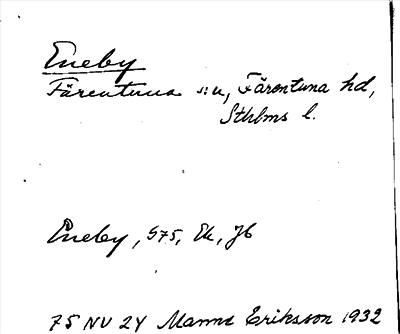 Eneby
Färentuna sn, Färentuna hd,
Sthlms l.
Eneby, S75, Ek, Jb
75 NV 2Y Manne Eriksson 1932